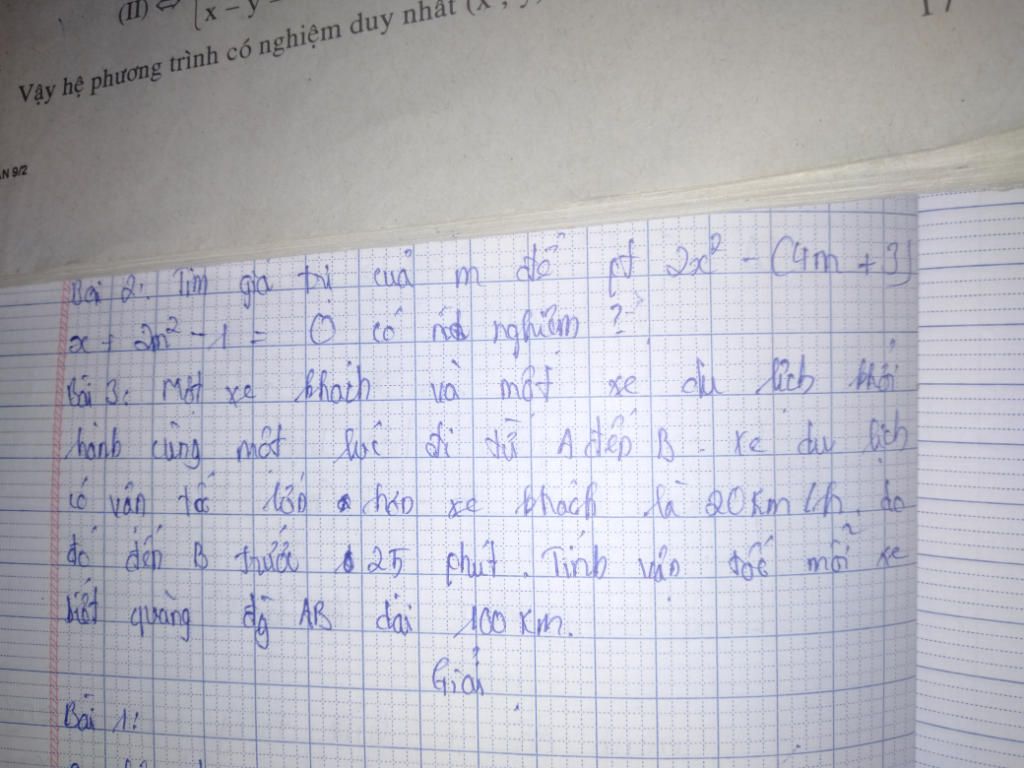 (II) ⇔ { x - y
Vậy hệ phương trình có nghiệm duy nhất (x ; y)
17
ÁN 9/2
Bài 2: Tìm giá trị cuả m để pt 2x² - (4m + 3)
x + 2m² - 1 = 0 có nghiệm ?
Bài 3: Một xe khách và một xe du lịch khởi
hành cùng một lúc đi từ A đến B. xe du lịch
có vận tốc lớn hơn xe khách là 20 Km/h. do
đó đến B trước 25 phút. Tính vận tốc mỗi xe
biết quãng đg AB dài 100 Km.
Giải
Bài 1: